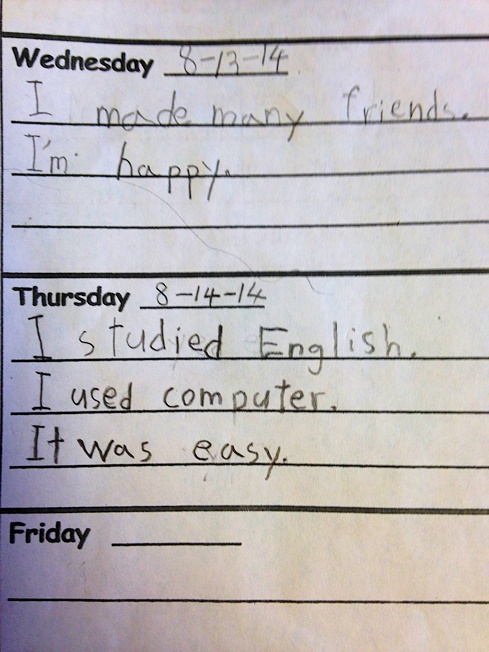 Wednesday 8-13-14
I made many friends.
I'm happy.
Thursday 8-14-14
I studied English.
I used computer.
It was easy.
Friday